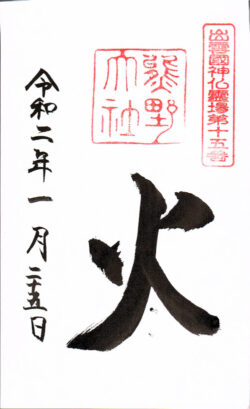 出雲國神仏霊場第十五番
熊野大社
火
令和二年一月二十五日